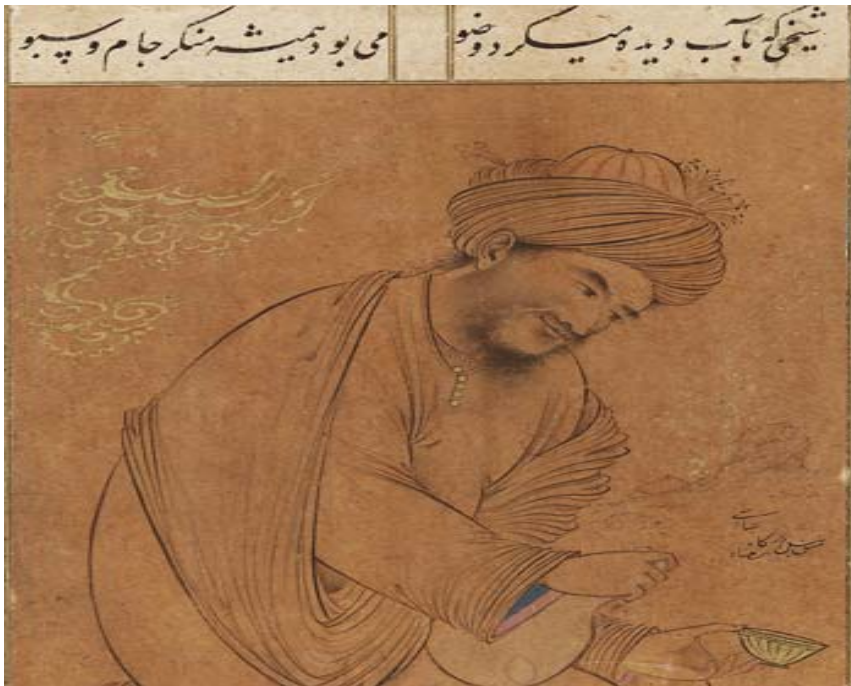 شیخی که بآب دیده میکرد وضو می بود همیشه منکر جام و سبو